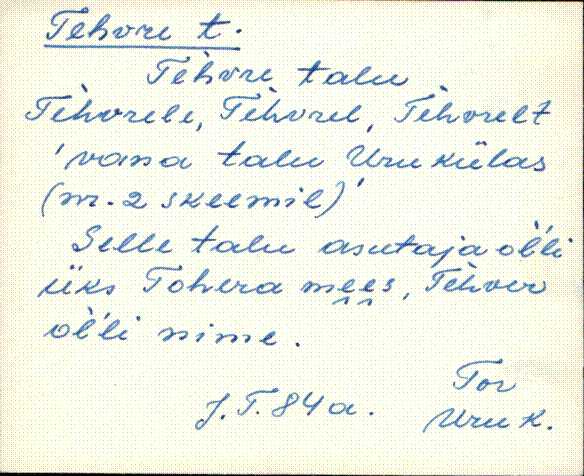 Tehvre t.
Tèhvre talu
Tèhvrele, Tèhvrel, Tèhvrelt
'vana talu Uru külas
(nr. 2 skeemil)'
Selle talu asutaja oĺli
üks Tohvra mees, Tèhver
oĺli nime.
J. T. 84 a.
Tor
Uru k.